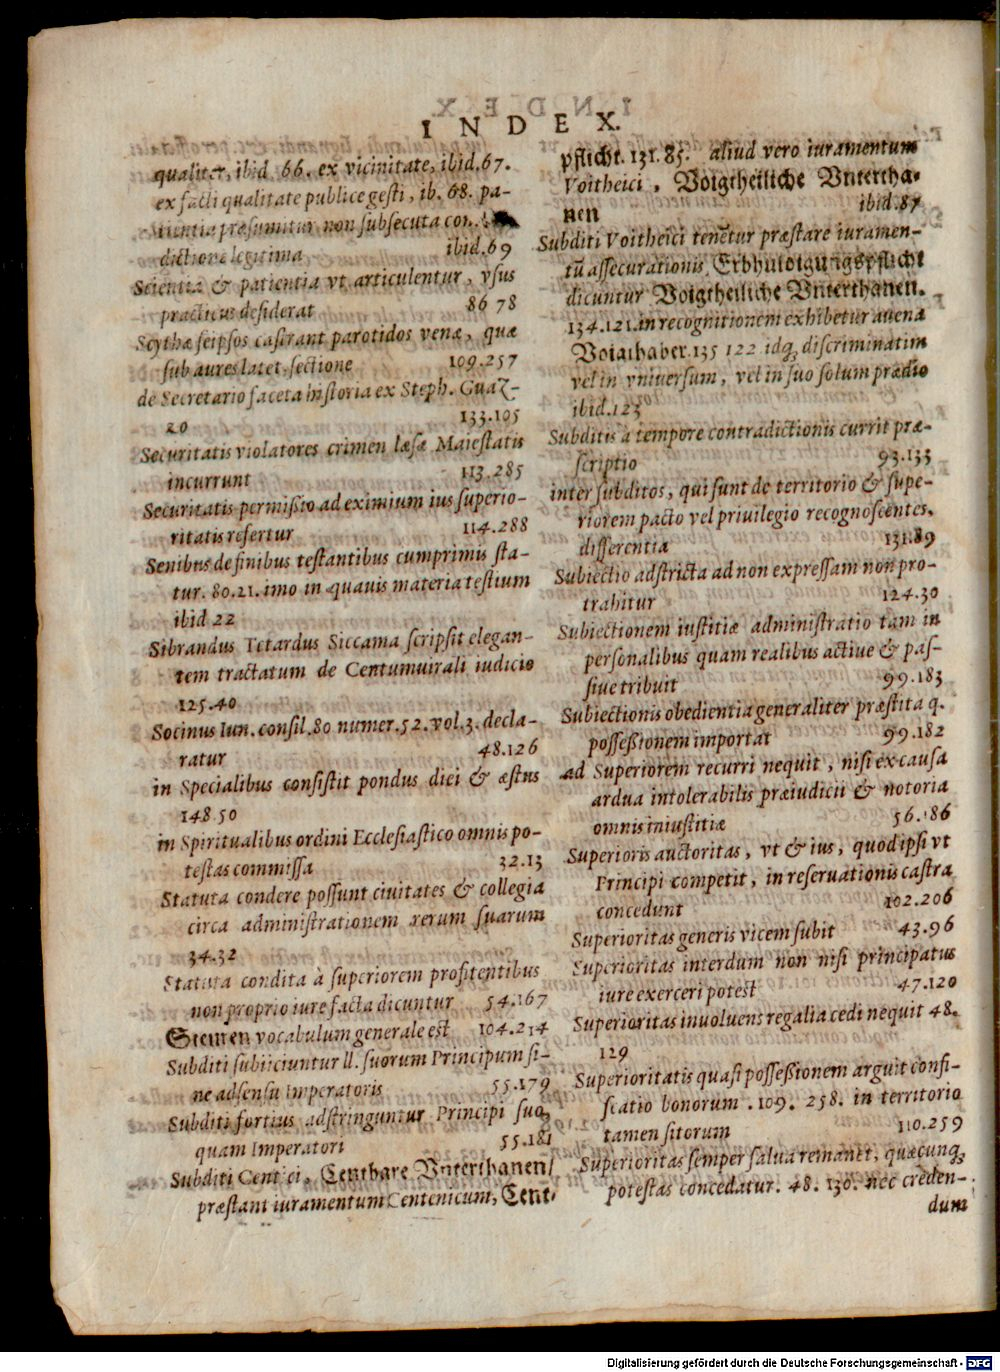 INDEX.
qualiter, ibid. 66. ex vicinitate, ibid. 67.
ex facti qualitate publice gesti, ib. 68. pa-
tientia præsumitur non subsecuta con-
dictione legitima ibid. 69
Scientia & patientia vt articulentur, vsus
practicus desiderat 86 78
Scythæ seipsos castrant parotidos venæ, quæ
sub aures latet, sectione 109.257
de Secretario faceta historia ex Steph. Guaz-
zo 133.105
Securitatis violatores crimen læsæ Maiestatis
incurrunt 113.285
Securitatis permißio ad eximium ius superio-
ritatis refertur 114.288
Senibus de finibus testantibus cumprimis sta-
tur. 80.21. imo in quauis materia testium
ibid 22
Sibrandus Tetardus Siccama scripsit elegan-
tem tractatum de Centumuirali iudicio
125.40
Socinus Iun. consil. 80 numer. 52. vol. 3. decla-
ratur 48.126
in Specialibus consistit pondus diei & æstus
148.50
in Spiritualibus ordini Ecclesiastico omnis po-
testas commissa 32.13
Statuta condere possunt ciuitates & collegia
circa administrationem rerum suarum
34.32
Statuta condita à superiorem profitentibus
non proprio iure facta dicuntur 54.167
Stewen vocabulum generale est 104.214
Subditi subijciuntur ll. suorum Principum si-
ne adsensu Imperatoris 55.179
Subditi fortius adstringuntur Principi suo,
quam Imperatori 55.181
Subditi Centici, Centbare Vnterthanen/
præstant iuramentum Centenicum, Cent-
pflicht. 131. 85. aliud vero iuramentum
Voitheici, Voigtheiliche Vntertha-
nen ibid. 87
Subditi Voitheici tenẽtur præstare iuramen-
tũ assecurationis Erbhuldigungspflicht
dicuntur Voigtheiliche Vnterthanen.
134.121. in recognitionem exhibetur auena
Voigthaber. 135 122 idq; discriminatim
vel in vniuersum, vel in suo solum prædio
ibid. 123
Subditis à tempore contradictionis currit præ-
scriptio 93.133
inter subditos, qui sunt de territorio & supe-
riorem pacto vel priuilegio recognoscentes,
differentia 131.89
Subiectio adstricta ad non expressam non pro-
trahitur 124.30
Subiectionem iustitiæ administratio tam in
personalibus quam realibus actiue & pas-
siue tribuit 99.183
Subiectionis obedientia generaliter præstita q.
possessionem importat 99.182
ad Superiorem recurri nequit, nisi ex causa
ardua intolerabilis præiudicii & notoria
omnis iniustitiæ 56.186
Superioris auctoritas, vt & ius, quod ipsi vt
Principi competit, in reseruationis castra
concedunt 102.206
Superioritas generis vicem subit 43.96
Superioritas interdum non nisi principatus
iure exerceri potest 47.120
Superioritas inuoluens regalia cedi nequit 48.
129
Superioritatis quasi possessionem arguit confi-
scatio bonorum. 109. 258. in territorio
tamen sitorum 110.259
Superioritas semper salua remanet, quæcunq;
potestas concedatur. 48. 130. nec creden-
dum
Digitalisierung gefördert durch die Deutsche Forschungsgemeinschaft - DFG